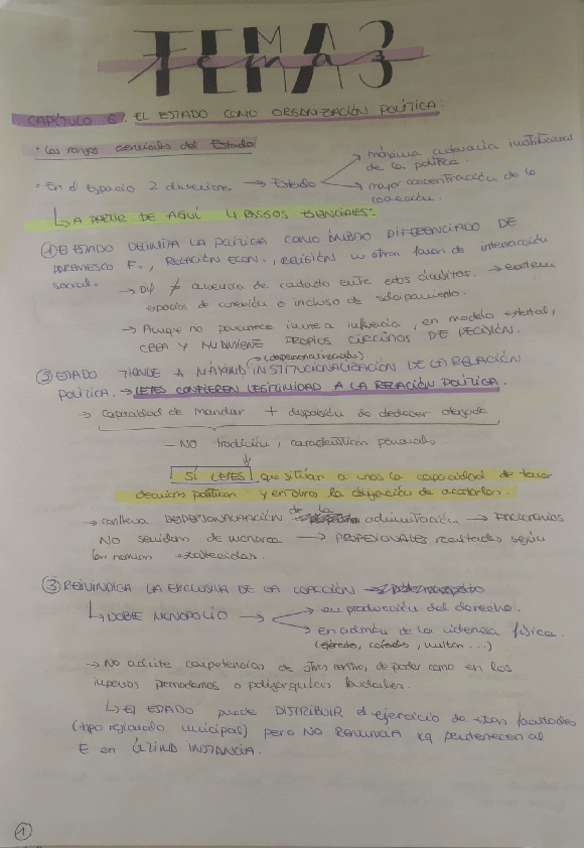 TEMA 3
tema 3
CAPÍTULO 6: EL ESTADO COMO ORGANIZACIÓN POLÍTICA:
· Los rasgos esenciales del Estado
· En el Espacio 2 → Estado
máxima institucional
de la política.
mayor concentración de la
coacción.
↳ A PARTIR DE AQUÍ 4 RASGOS ESENCIALES:
① EL ESTADO DELIMITA LA POLÍTICA COMO ÁMBITO DIFERENCIADO DE
PARENTESCO F., RELACIÓN ECON., RELIGIÓN u otras formas de interacción
social.
→ Dif ≠ ausencia de contacto entre estos ámbitos. → existen
espacios de conexión o incluso de solapamiento.
→ Aunque no permanece inmune a influencia, en modelo estatal,
CREA Y MANTIENE PROPIOS CIRCUITOS DE DECISIÓN.
(despersonalizada)
② ESTADO TIENDE A MÁXIMA INSTITUCIONALIZACIÓN DE LA RELACIÓN
POLÍTICA. → LEYES CONFIEREN LEGITIMIDAD A LA RELACIÓN POLÍTICA.
→ Capacidad de mandar + disposición de obedecer
– NO tradición, características personales
SÍ LEYES que sitúan a unos la capacidad de tomar
decisiones políticas y en otros la obligación de acatarlas.
→ conlleva DESPERSONALIZACIÓN de la administración → FUNCIONARIOS
NO servidores de monarca → PROFESIONALES reclutados según
las normas establecidas.
③ REIVINDICA LA EXCLUSIVA DE LA COACCIÓN
↳ DOBLE MONOPOLIO →
en producción del derecho.
en admón de la violencia física.
(ejército, cárceles, multas...)
→ No admite competencias de otros centros de poder como en los
imperios premodernos o poliarquías feudales.
↳ El ESTADO puede DISTRIBUIR el ejercicio de estas facultades
(tipo municipal) pero NO RENUNCIA xq pertenecen al
E en ÚLTIMA INSTANCIA.
①